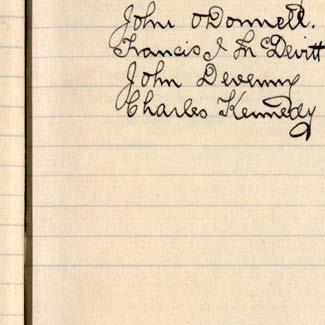 John O'Donnell.
Francis J McDevitt
John Devenny
Charles Kennedy